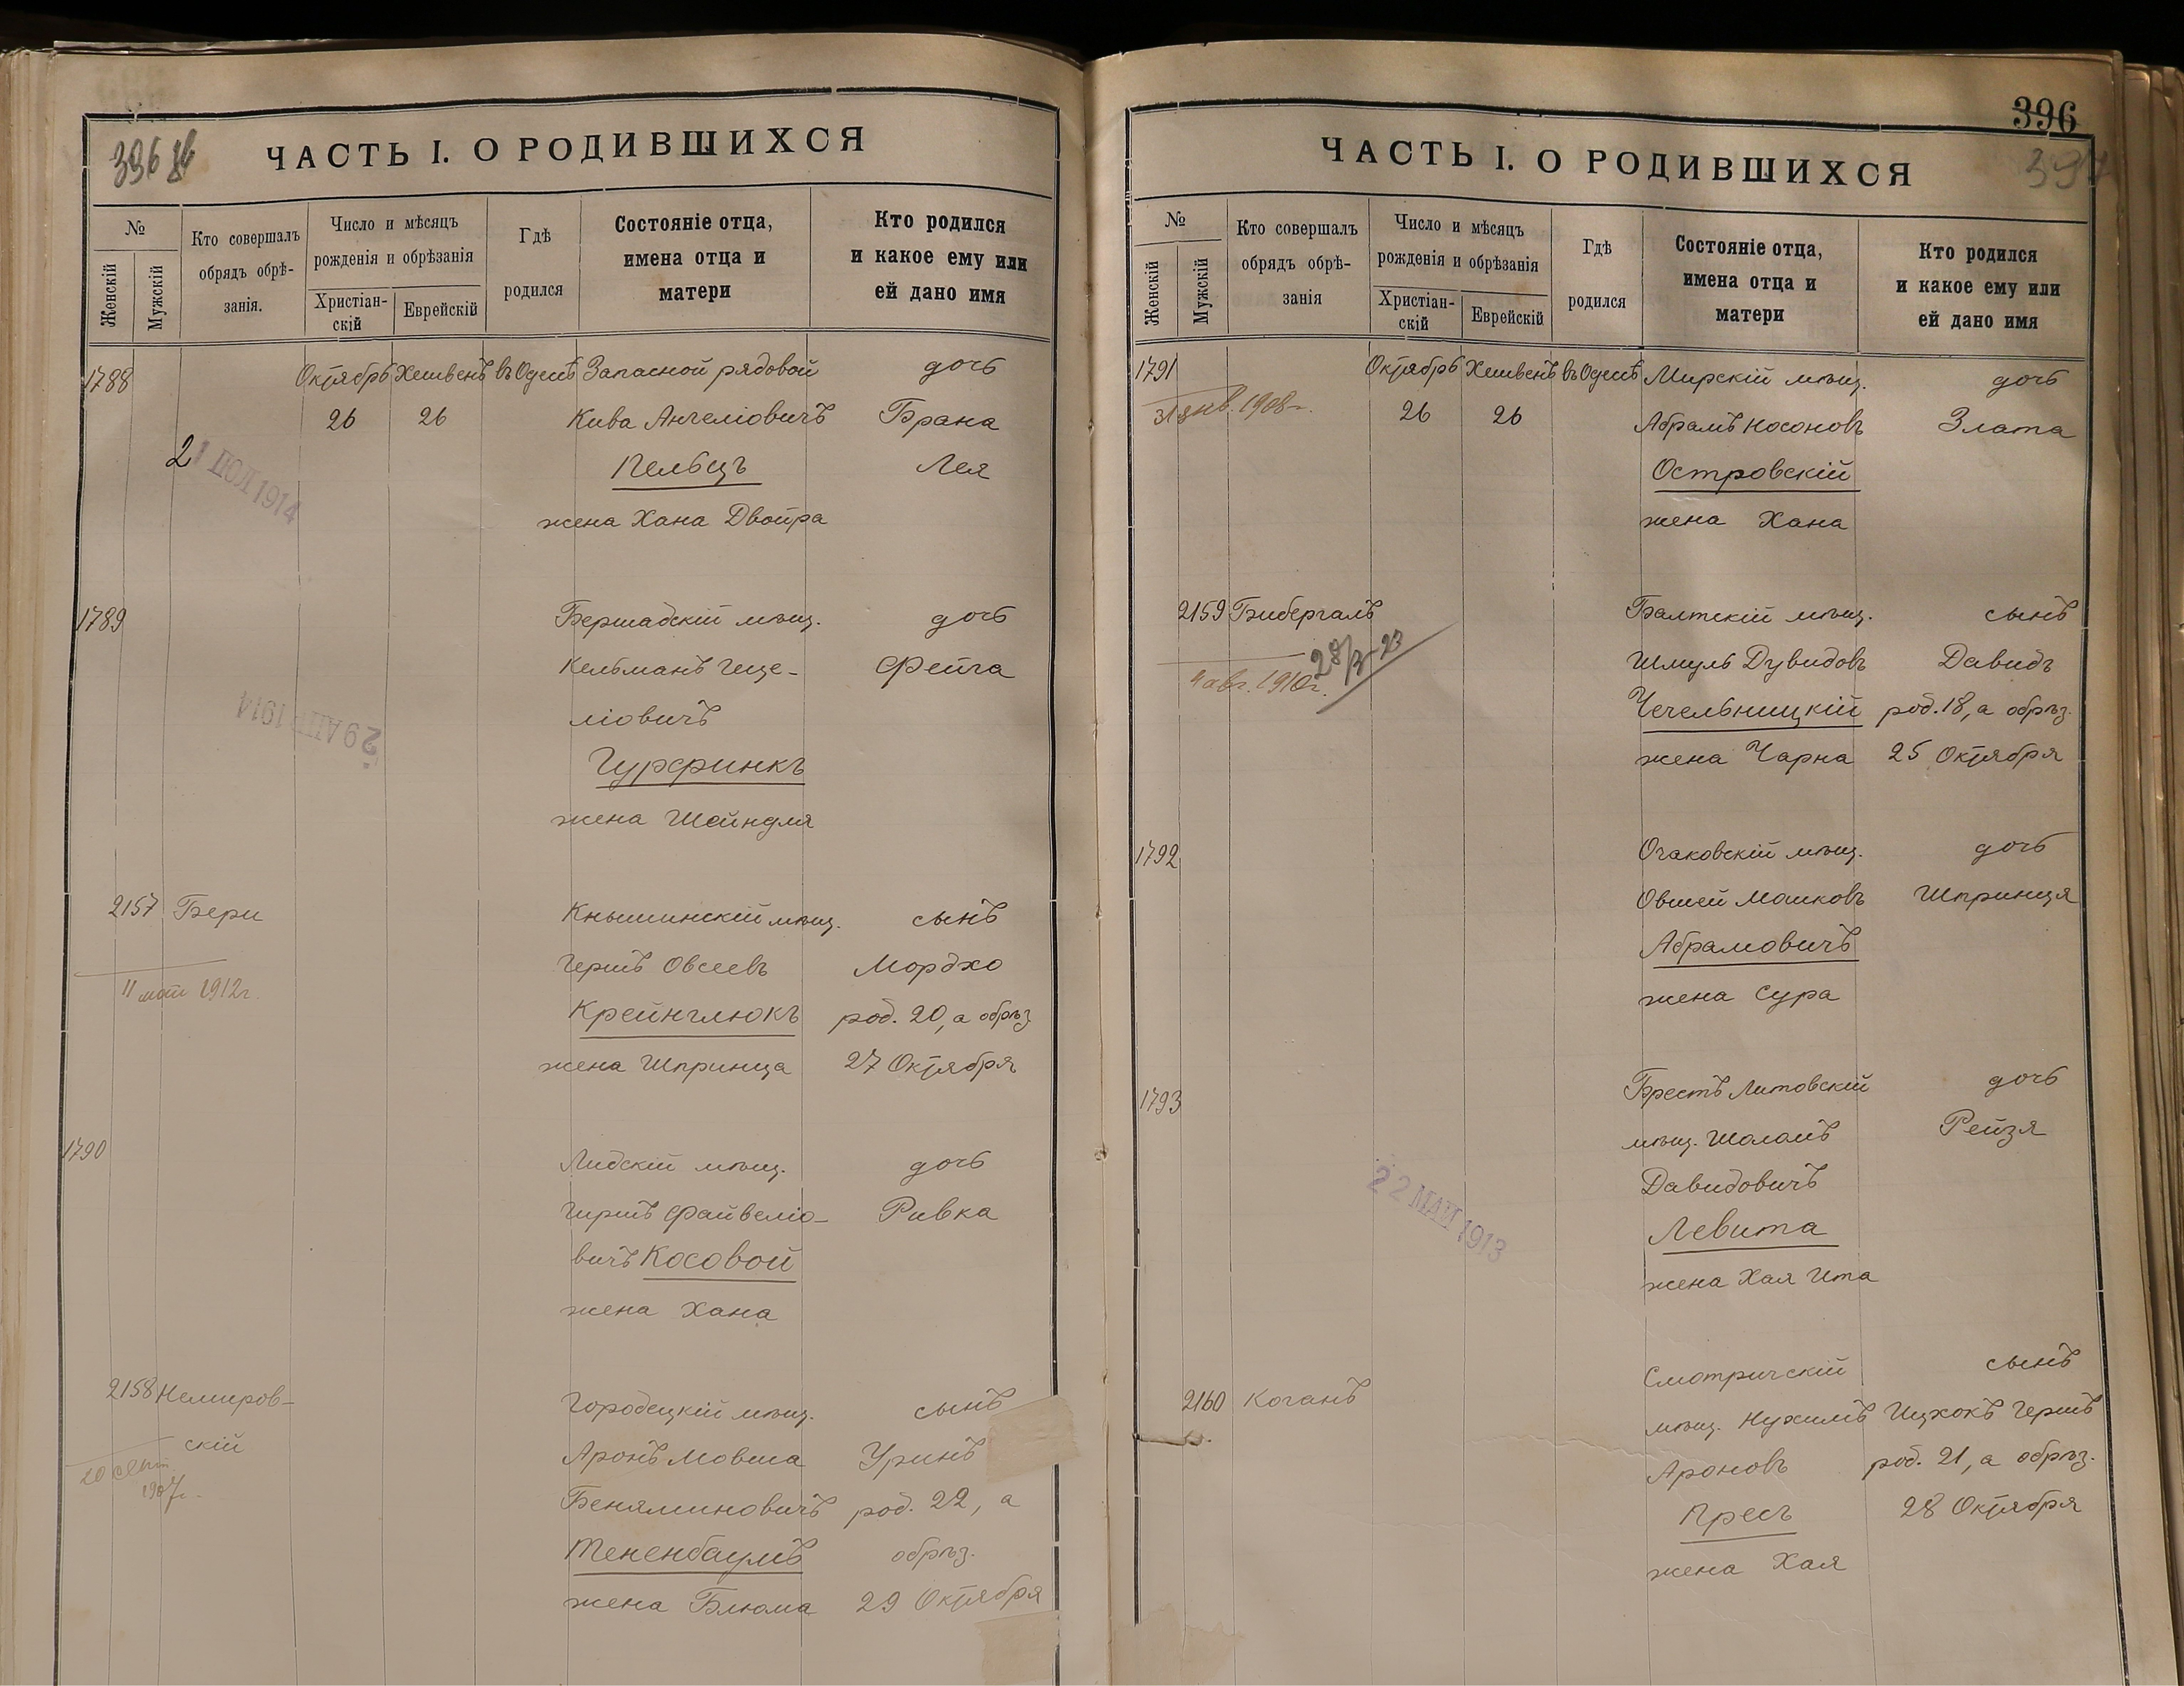 396 зв
ЧАСТЬ I. О РОДИВШИХСЯ
№
Женскій
Мужскій
Кто совершалъ
обрядъ обрѣ-
занія.
Число и мѣсяцъ
рожденія и обрѣзанія
Христіан-
скій
Еврейскій
Гдѣ
родился
Состояніе отца,
имена отца и
матери
Кто родился
и какое ему или
ей дано имя
1788 Октябрь Хешвенъ въ Одессѣ Запасной рядовой дочь
26 26 Кива Анчеліовичъ Брана
Пельцъ Лея
21 1914
жена Хана Двойра
1789 Бершадскій мѣщ. дочь
Кельманъ Геце- Фейга
ліовичъ
29 АПР 1914
Гурфинкъ
жена Шейндля
2157 Бери Кнышинскій мѣщ. сынъ
Гершъ Овсеевъ Мордхо
11 1912г.
Крейнглюкъ род. 20, а обрѣз
жена Шпринца 27 Октября
1790 Лидскій мѣщ. дочь
Гиршъ Файвеліо- Ривка
вичъ Косовой
жена Хана
2158 Немиров- Городецкій мѣщ. сынъ
скій Аронъ Мовша Уринъ
20 сент
1907г.
Беняминовичъ род. 22, а
Тененбаумъ обрѣз.
жена Блюма 29 Октября
396
397
ЧАСТЬ I. О РОДИВШИХСЯ
№
Женскій
Мужскій
Кто совершалъ
обрядъ обрѣ-
занія
Число и мѣсяцъ
рожденія и обрѣзанія
Христіан-
скій
Еврейскій
Гдѣ
родился
Состояніе отца,
имена отца и
матери
Кто родился
и какое ему или
ей дано имя
1791 Октябрь Хешвенъ въ Одессѣ Мирскій мѣщ. дочь
31 янв. 1908г. 26 26 Абрамъ Носоновъ Злата
Островскій
жена Хана
2159 Бибергалъ Балтскій мѣщ. сынъ
Шмуль Дувидовъ Давидъ
4 авг. 1910г.
Чечельницкій род. 18, а обрѣз.
жена Чарна 25 Октября
1792 Очаковскій мѣщ. дочь
Овшей Мошковъ Шпринця
Абрамовичъ
жена Сура
1793 Брестъ Литовскій дочь
мѣщ. Шоломъ Рейзя
Давидовичъ
22 МАЙ 1913
Левита
жена Хая Ита
2160 Коганъ Смотричскій сынъ
мѣщ. Нухимъ Ицхокъ Гершъ
Ароновъ род. 21, а обрѣз.
Пресъ 28 Октября
жена Хая